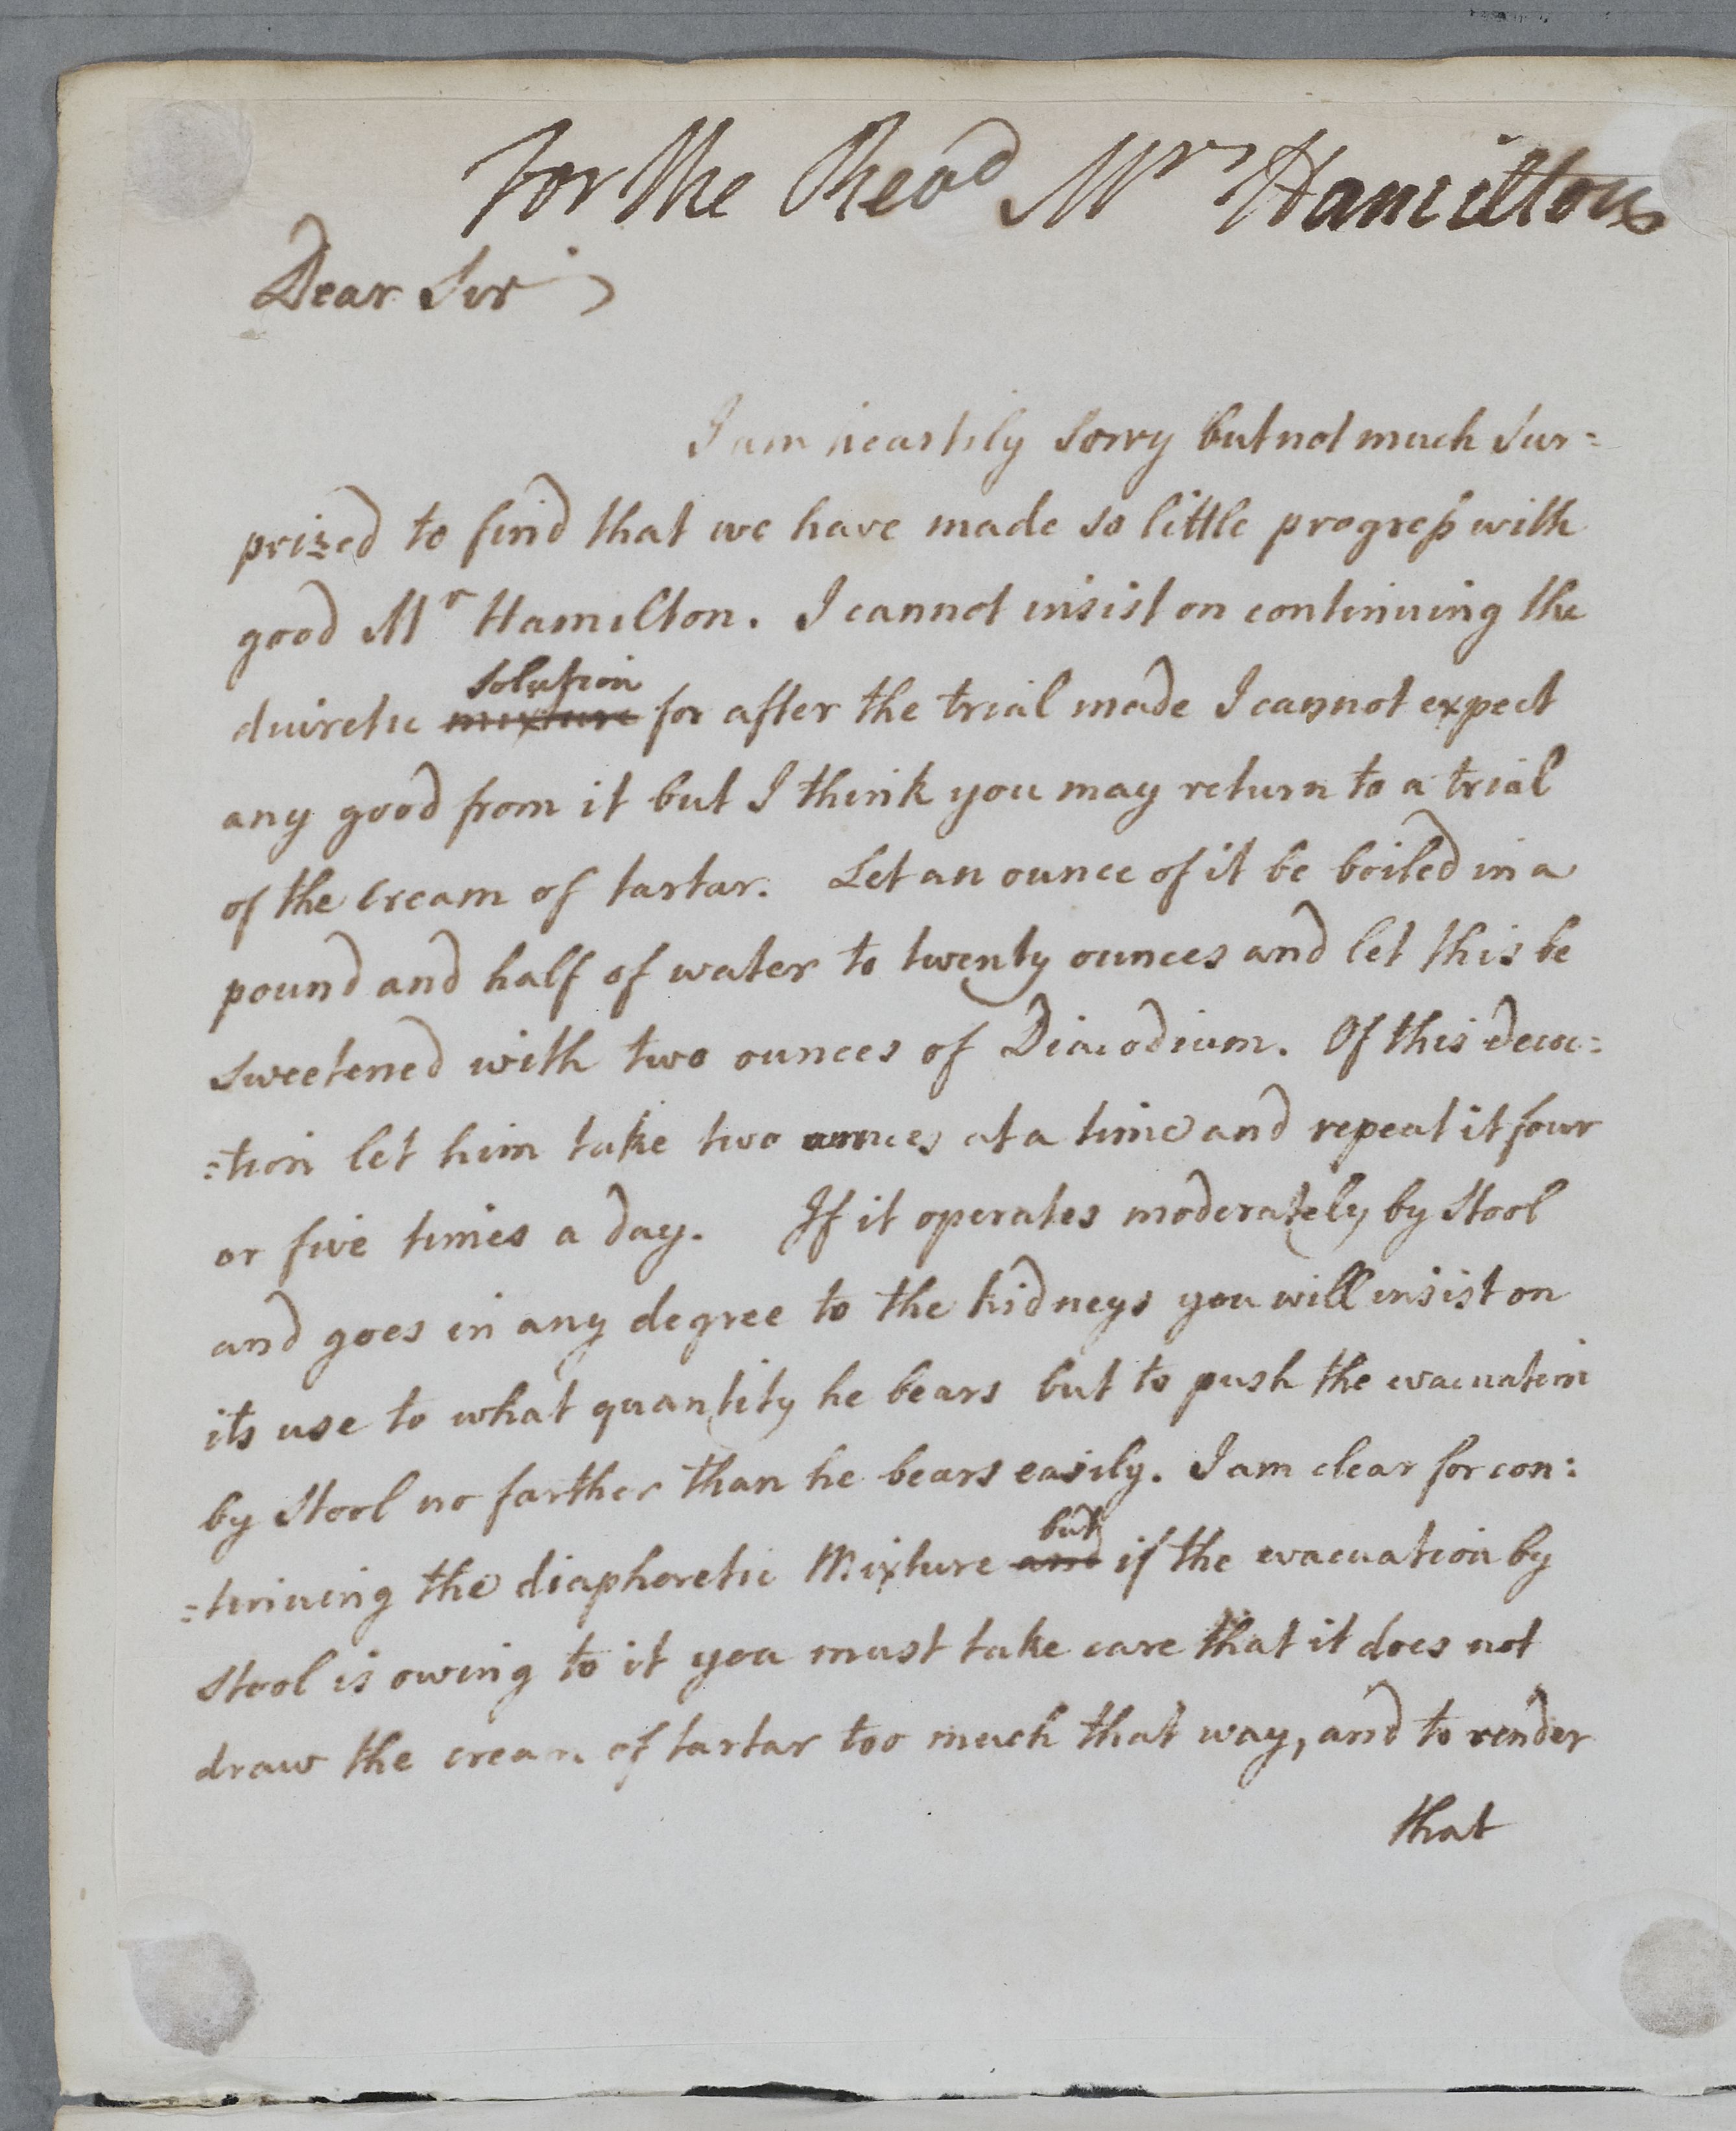 For the Revd Mr Hamilton
Dear Sir
I am heartily sorry but not much sur=
prized to find that we have made so little progress with
good Mr Hamilton. I cannot insist on continuing the
diuretic mixture solution for after the trial made I cannot expect
any good from it but I think you may return to a trial
of the cream of tartar. Let an ounce of it be boiled in a
pound and half of water to twenty ounces and let this be
sweetened with two ounces of Diacodium. Of this decoc=
=tion let him take two ounces at a time and repeat it four
or five times a day. If it operates moderately by stool
and goes in any degree to the kidneys you will insist on
its use to what quantity he bears but to push the evacuation
by stool no farther than he bears easily. I am clear for con:
=tinuing the diaphoretic Mixture and but if the evacuation by
stool is owing to it you must take care that it does not
draw the cream of tartar too much that way, and to render
that